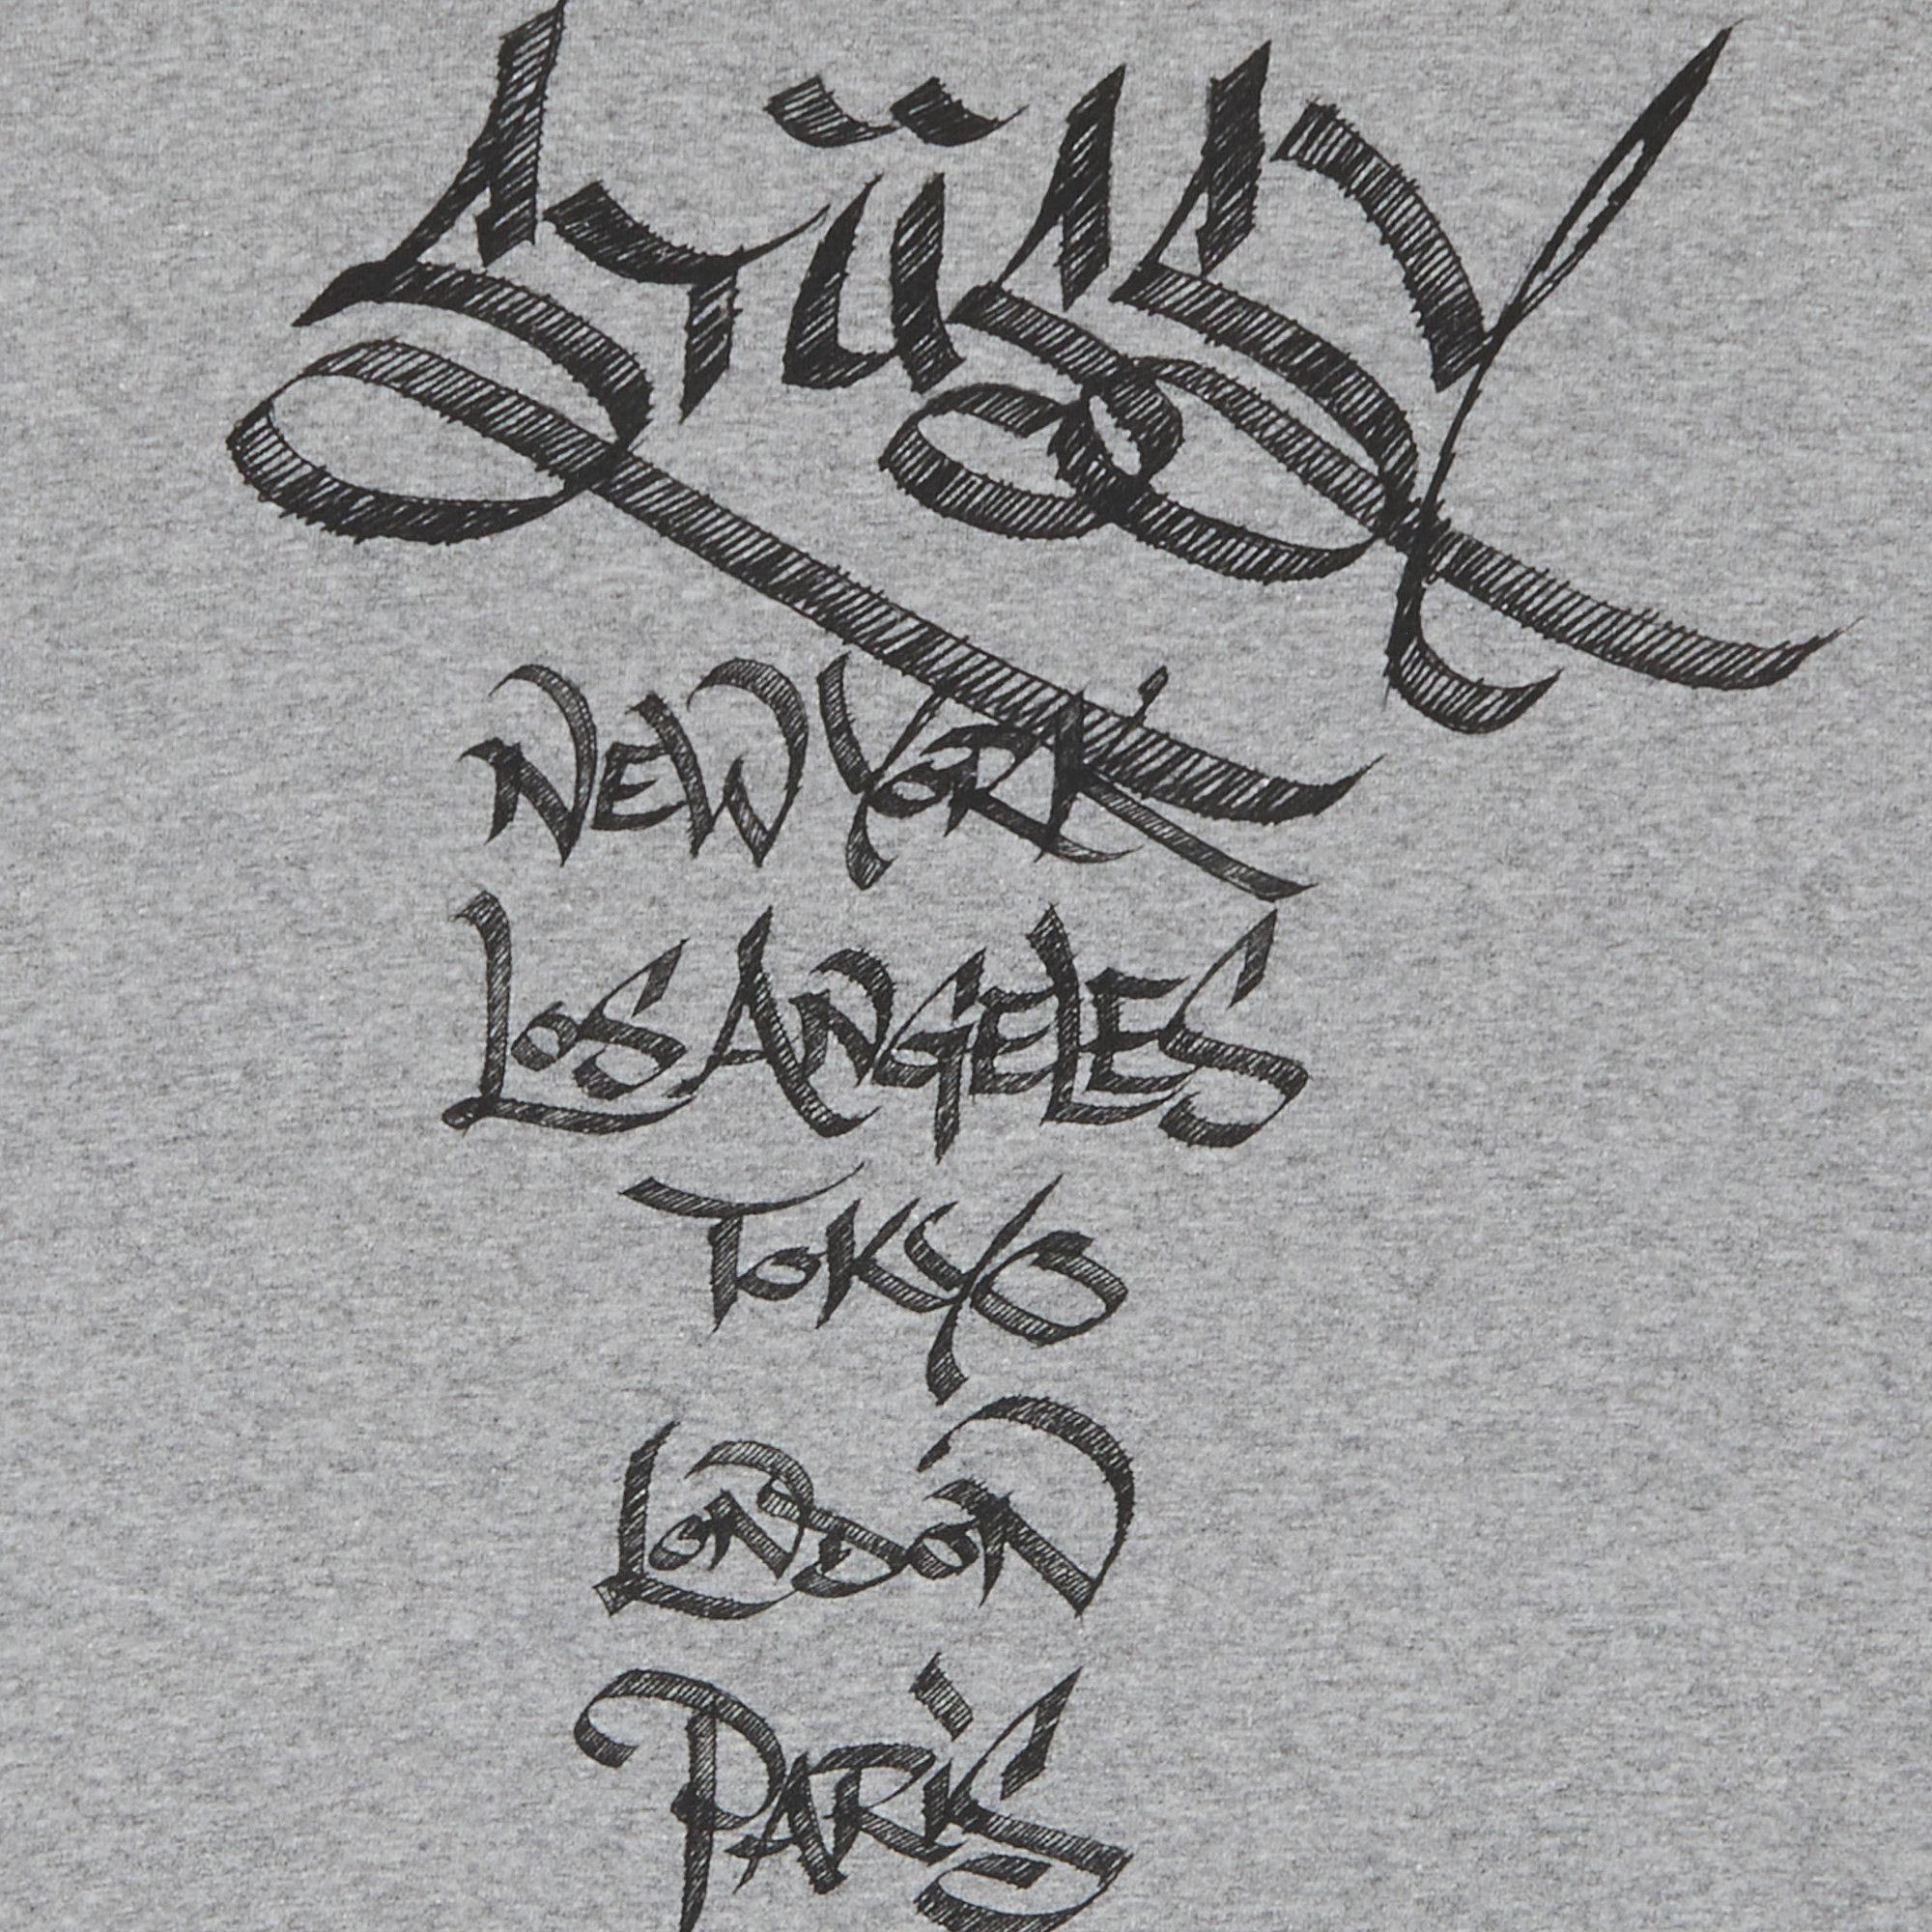 Stüssy
NEW YORK
LOS ANGELES
TOKYO
LONDON
PARIS